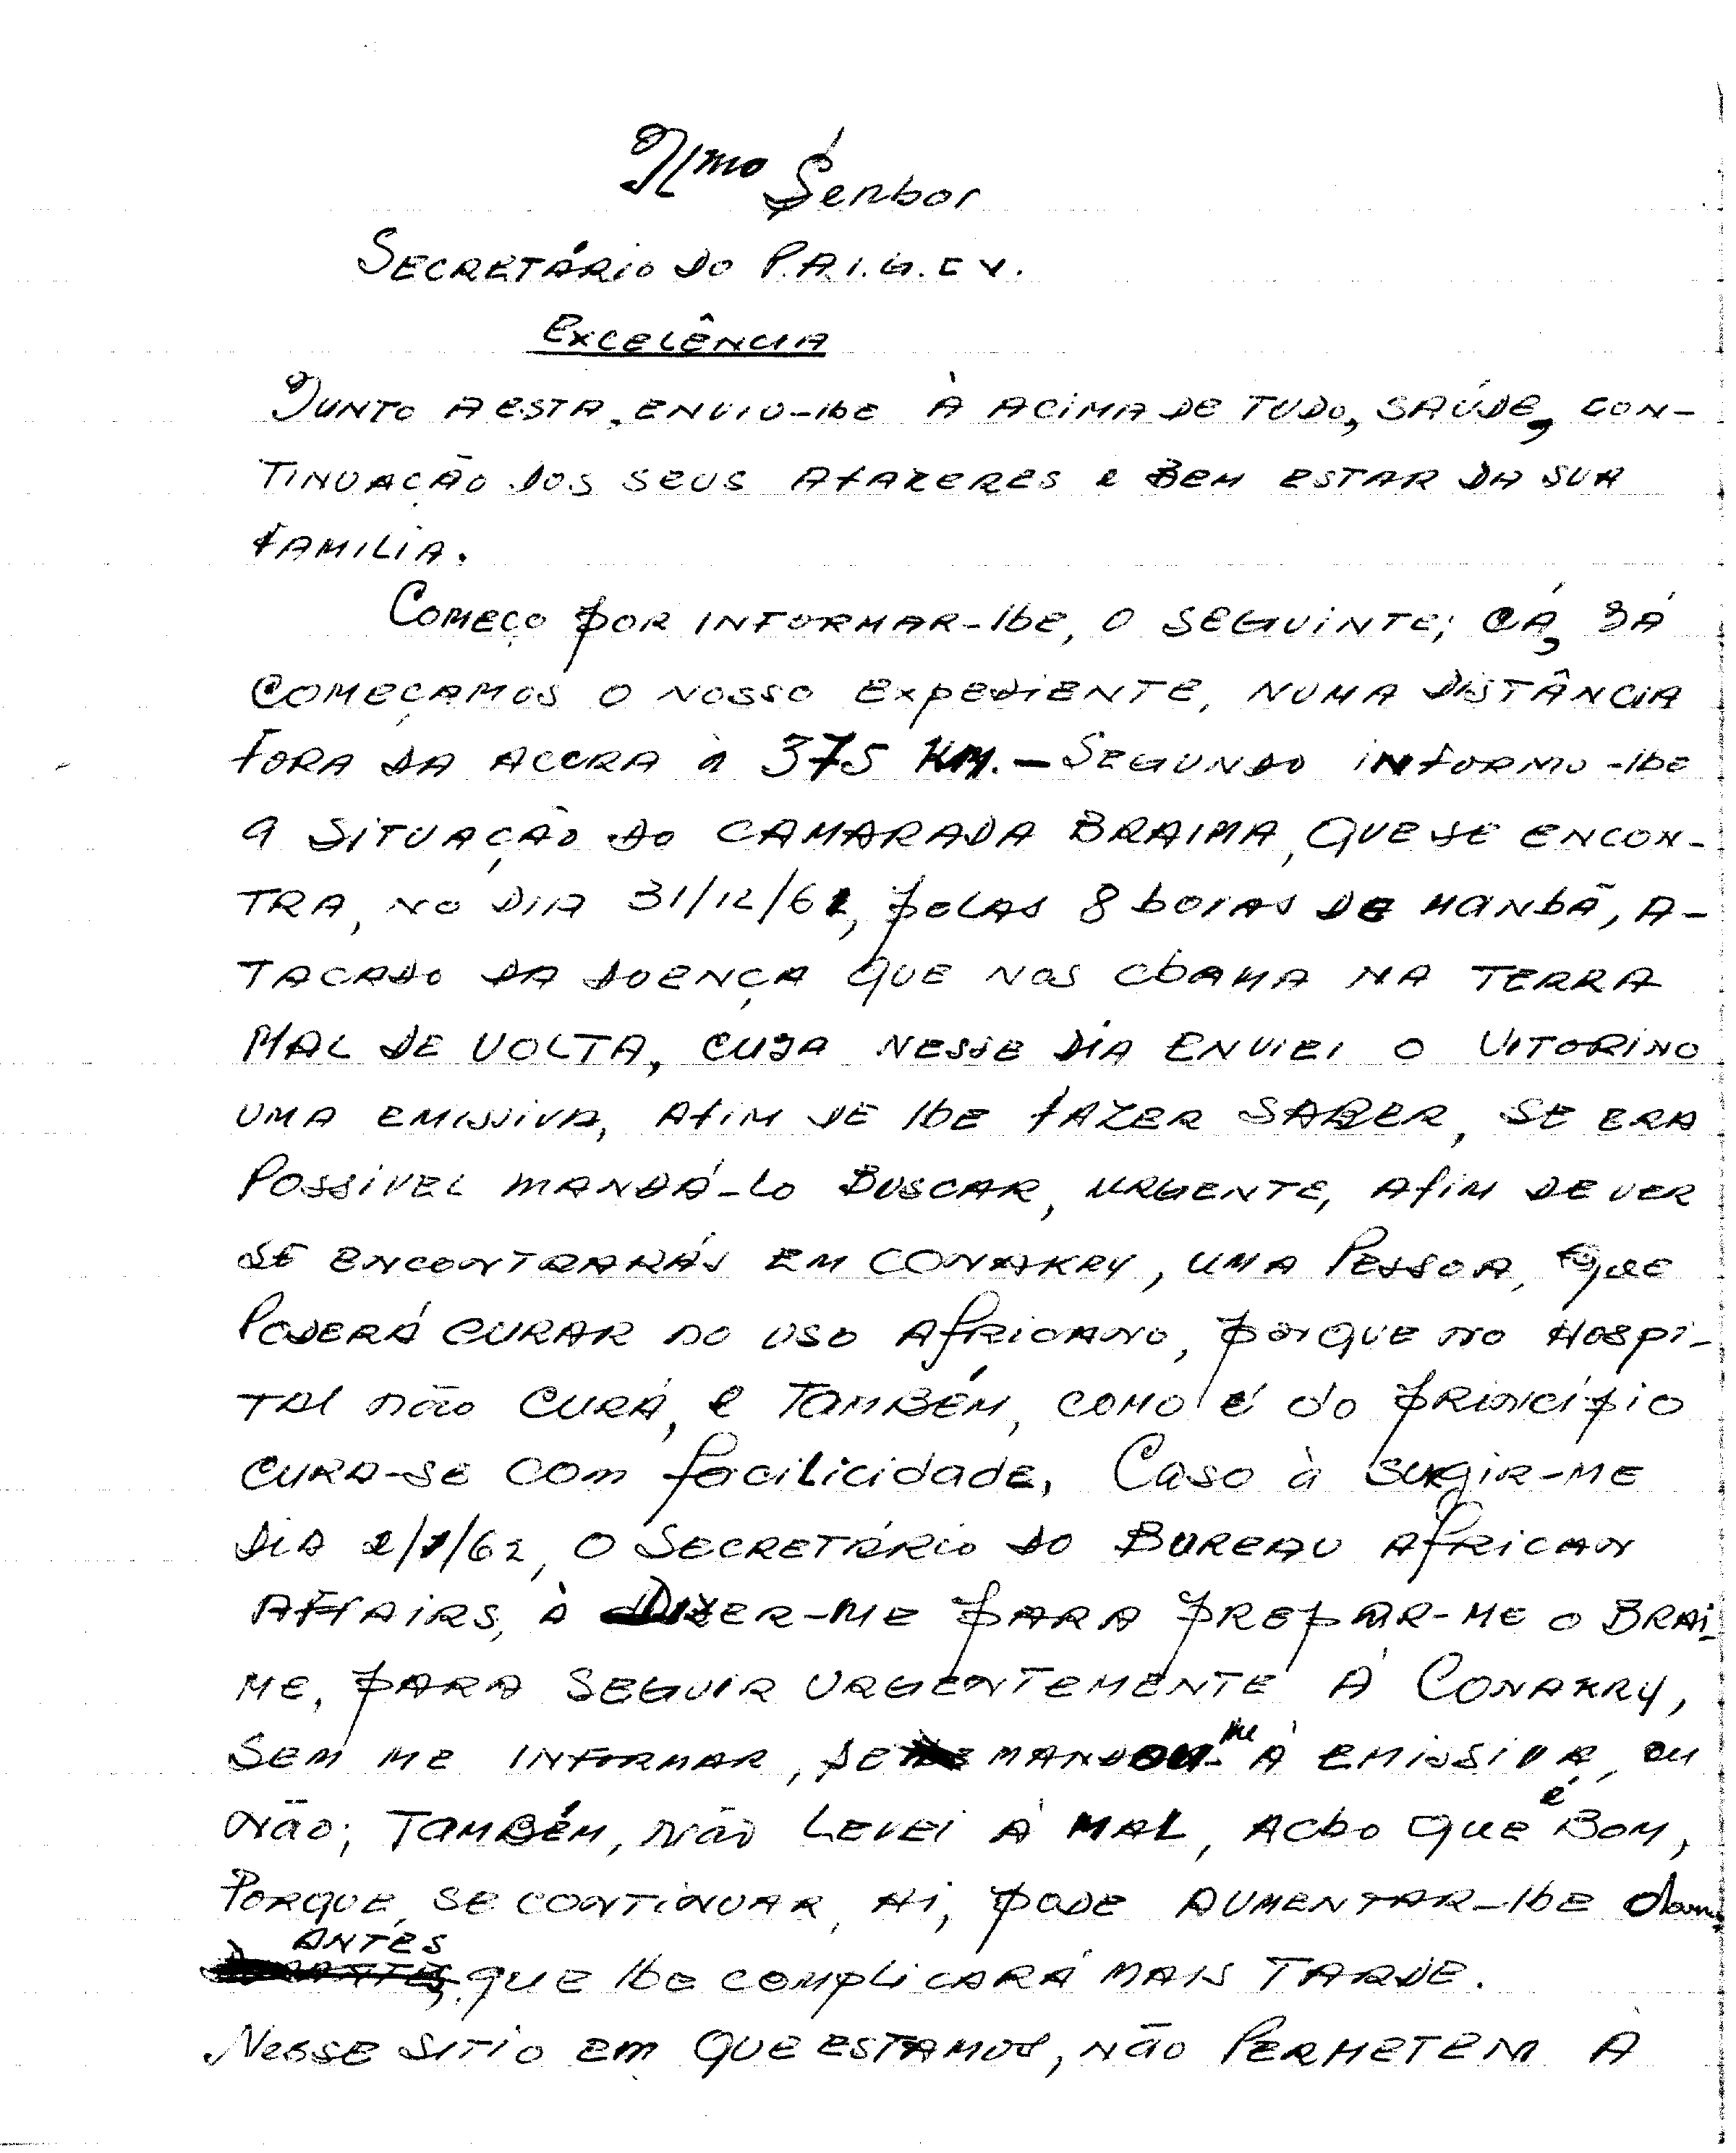 Ilmo Senhor
SECRETÁRIO DO P.A.I.G.C V.
EXCELÊNCIA
JUNTO A ESTA, ENVIO-lhe À ACIMA DE TUDO, SAÚDE, CON-
TINUAÇÃO DOS SEUS AFAZERES e BEM ESTAR DA SUA
FAMILIA.
COMEÇO POR INFORMAR-lhe, O SEGUINTE; CÁ, JÁ
COMEÇAMOS O NOSSO EXPEDIENTE, NUMA DISTÂNCIA
FORA DA ACCRA à 375 KM. — SEGUNDO INFORMO-lhe
A SITUAÇÃO DO CAMARADA BRAIMA, QUE SE ENCON-
TRA, NO DIA 31/12/61, PELAS 8 horas DE MANhÃ, A-
TACADO DA DOENÇA QUE NOS ChAMA NA TERRA
MAL DE VOLTA, CUJA NESSE DIA ENVIEI O VITORINO
UMA EMISSIVA, AFIM DE lhe FAZER SABER, SE ERA
POSSIVEL MANDÁ-LO BUSCAR, URGENTE, AFIM DE VER
SE ENCONTRARÁS EM CONAKRY, UMA PESSOA, QUE
PODERÁ CURAR NO USO AFRICANO, PORQUE NO HOSPI-
TAL NÃO CURÁ, E TAMBÉM, COMO É do PRINCÍPIO
CURA-SE COM facilicidade, Caso à SURGIR-ME
DIA 2/1/62, O SECRETÁRIO DO BUREAU AFRICAN
AFFAIRS, À DIZER-ME PARA PREPAR-ME O BRAI-
ME, PARA SEGUIR URGENTEMENTE À CONAKRY,
SEM ME INFORMAR, SE MANDOU-me À EMISSIVA, OU
NÃO; TAMBÉM, NÃO LEVEI À MAL, AChO QUE é BOM,
PORQUE, SE CONTINUAR, AI, PODE AUMENTAR-lhe
ANTES QUE lhe COMPLICARÁ MAIS TARDE.
NESSE SITIO EM QUE ESTAMOS, NÃO PERMETEM A